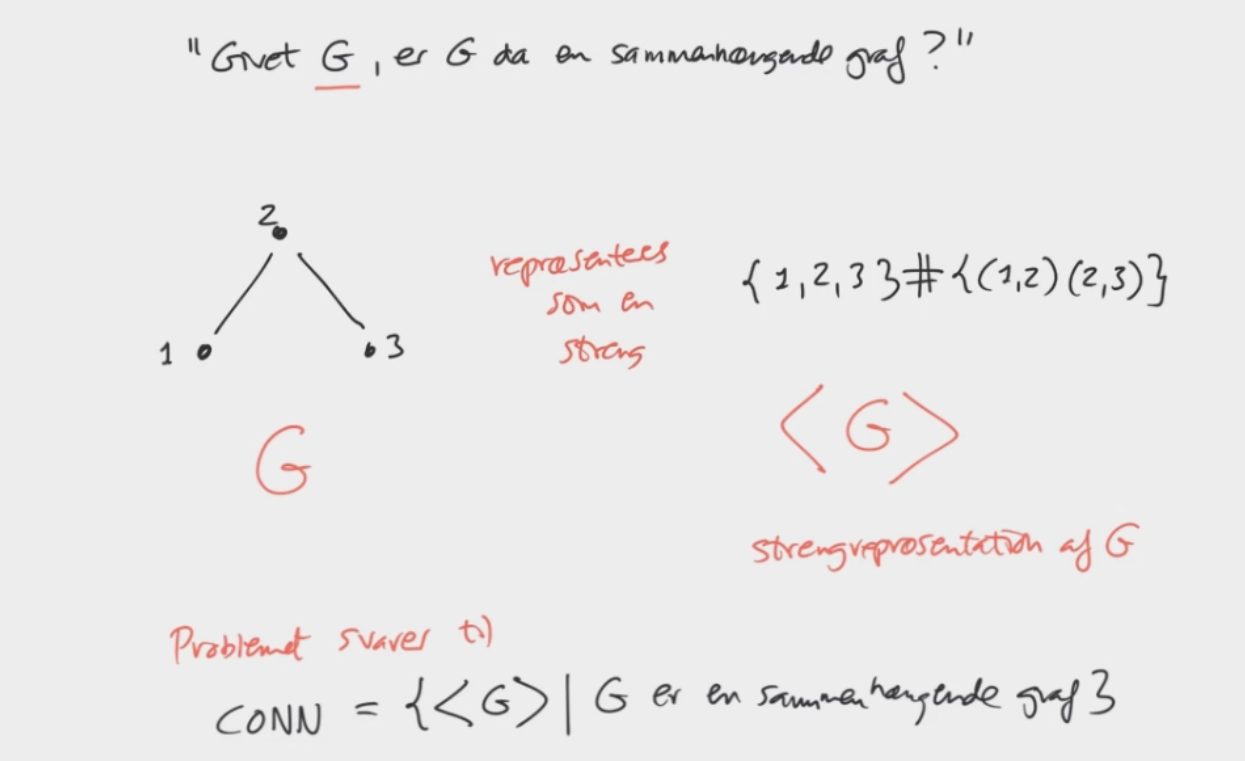 "Givet G, er G da en sammenhængende graf?"
2
1
3
repræsenteres
som en
streng
{1,2,3}#{(1,2)(2,3)}
G
<G>
strengrepræsentation af G
Problemet svarer til
CONN = {<G>| G er en sammenhængende graf}